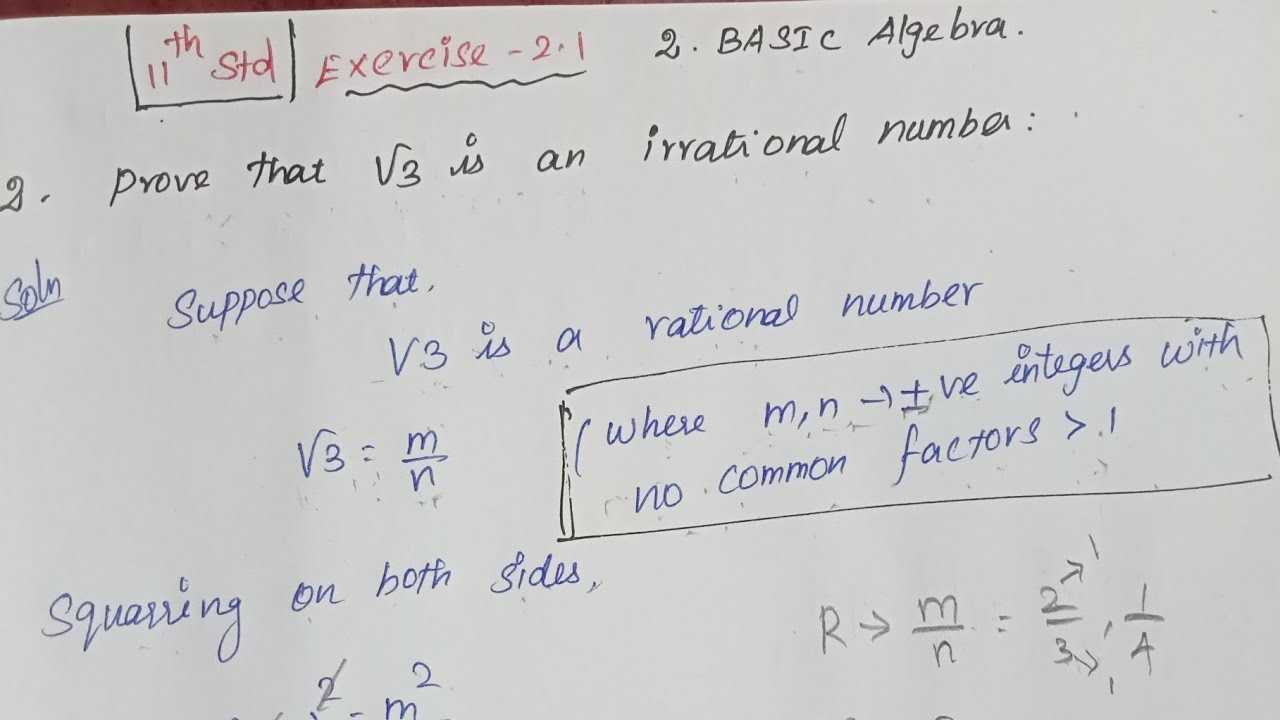 11th Std Exercise - 2.1 2. BASIC Algebra.
2. Prove that √3 is an irrational number:
Soln Suppose that,
√3 is a rational number
√3 = m/n (where m, n → ±ve integers with
no common factors > 1
Squarring on both sides,
R → m/n = 2/3, 1/4
1
1
2 = m²